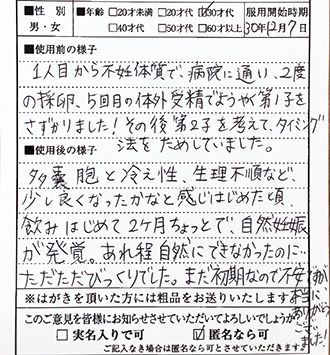 ■性別
男・女
■年齢 □20才未満 □20才代 ☑30才代
□40才代 □50才代 □60才以上
服用開始時期
30年12月7日
■使用前の様子
1人目から不妊体質で、病院に通い、2度
の採卵、5回目の体外受精でようやく第1子を
さずかりました！その後第2子を考えて、タイミング
法をためしていました。
■使用後の様子
多嚢胞と冷え性、生理不順など、
少し良くなったかなと感じはじめた頃、
飲みはじめて2ヶ月ちょっとで、自然妊娠
が発覚。あれ程自然にできなかったのに…
ただただびっくりでした。まだ初期なので不安
ですが
本当に
ありがとう
ございました。
※はがきを頂いた方には粗品をお送りいたします
このご意見を皆様にお知らせさせていただいてよろしいでしょうか
□実名入りで可 ☑匿名なら可
ご記入なき場合は匿名なら可とさせていただきます。